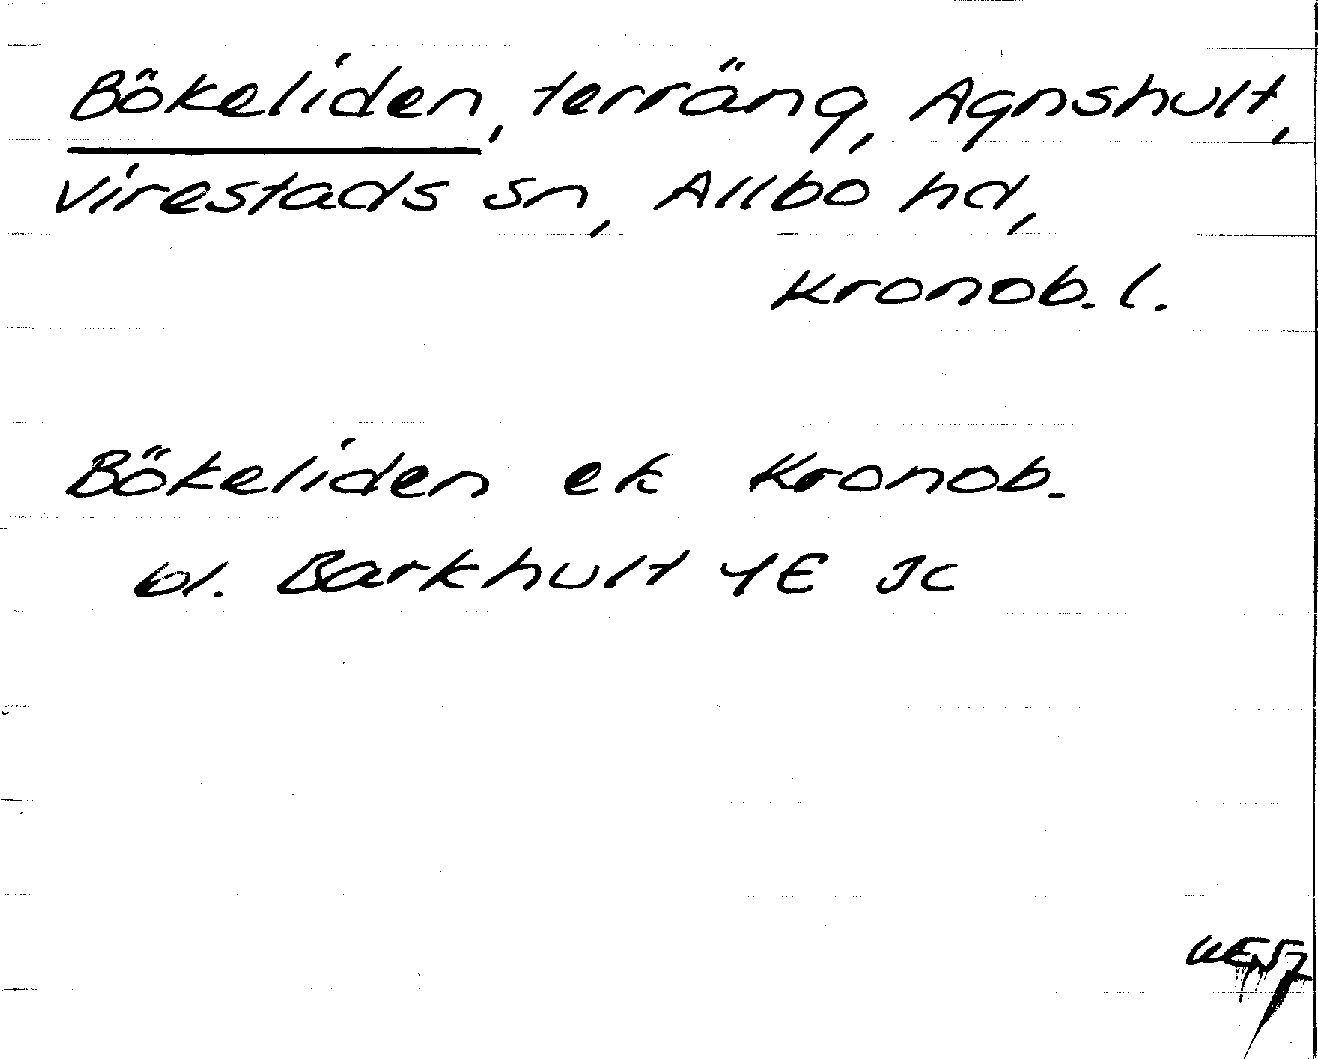 Bökeliden, terräng, Agnshult,
Virestads sn, Allbo hd,
Kronob. l.
Bökeliden ek Kronob.
bl. Barkhult 4E Jc